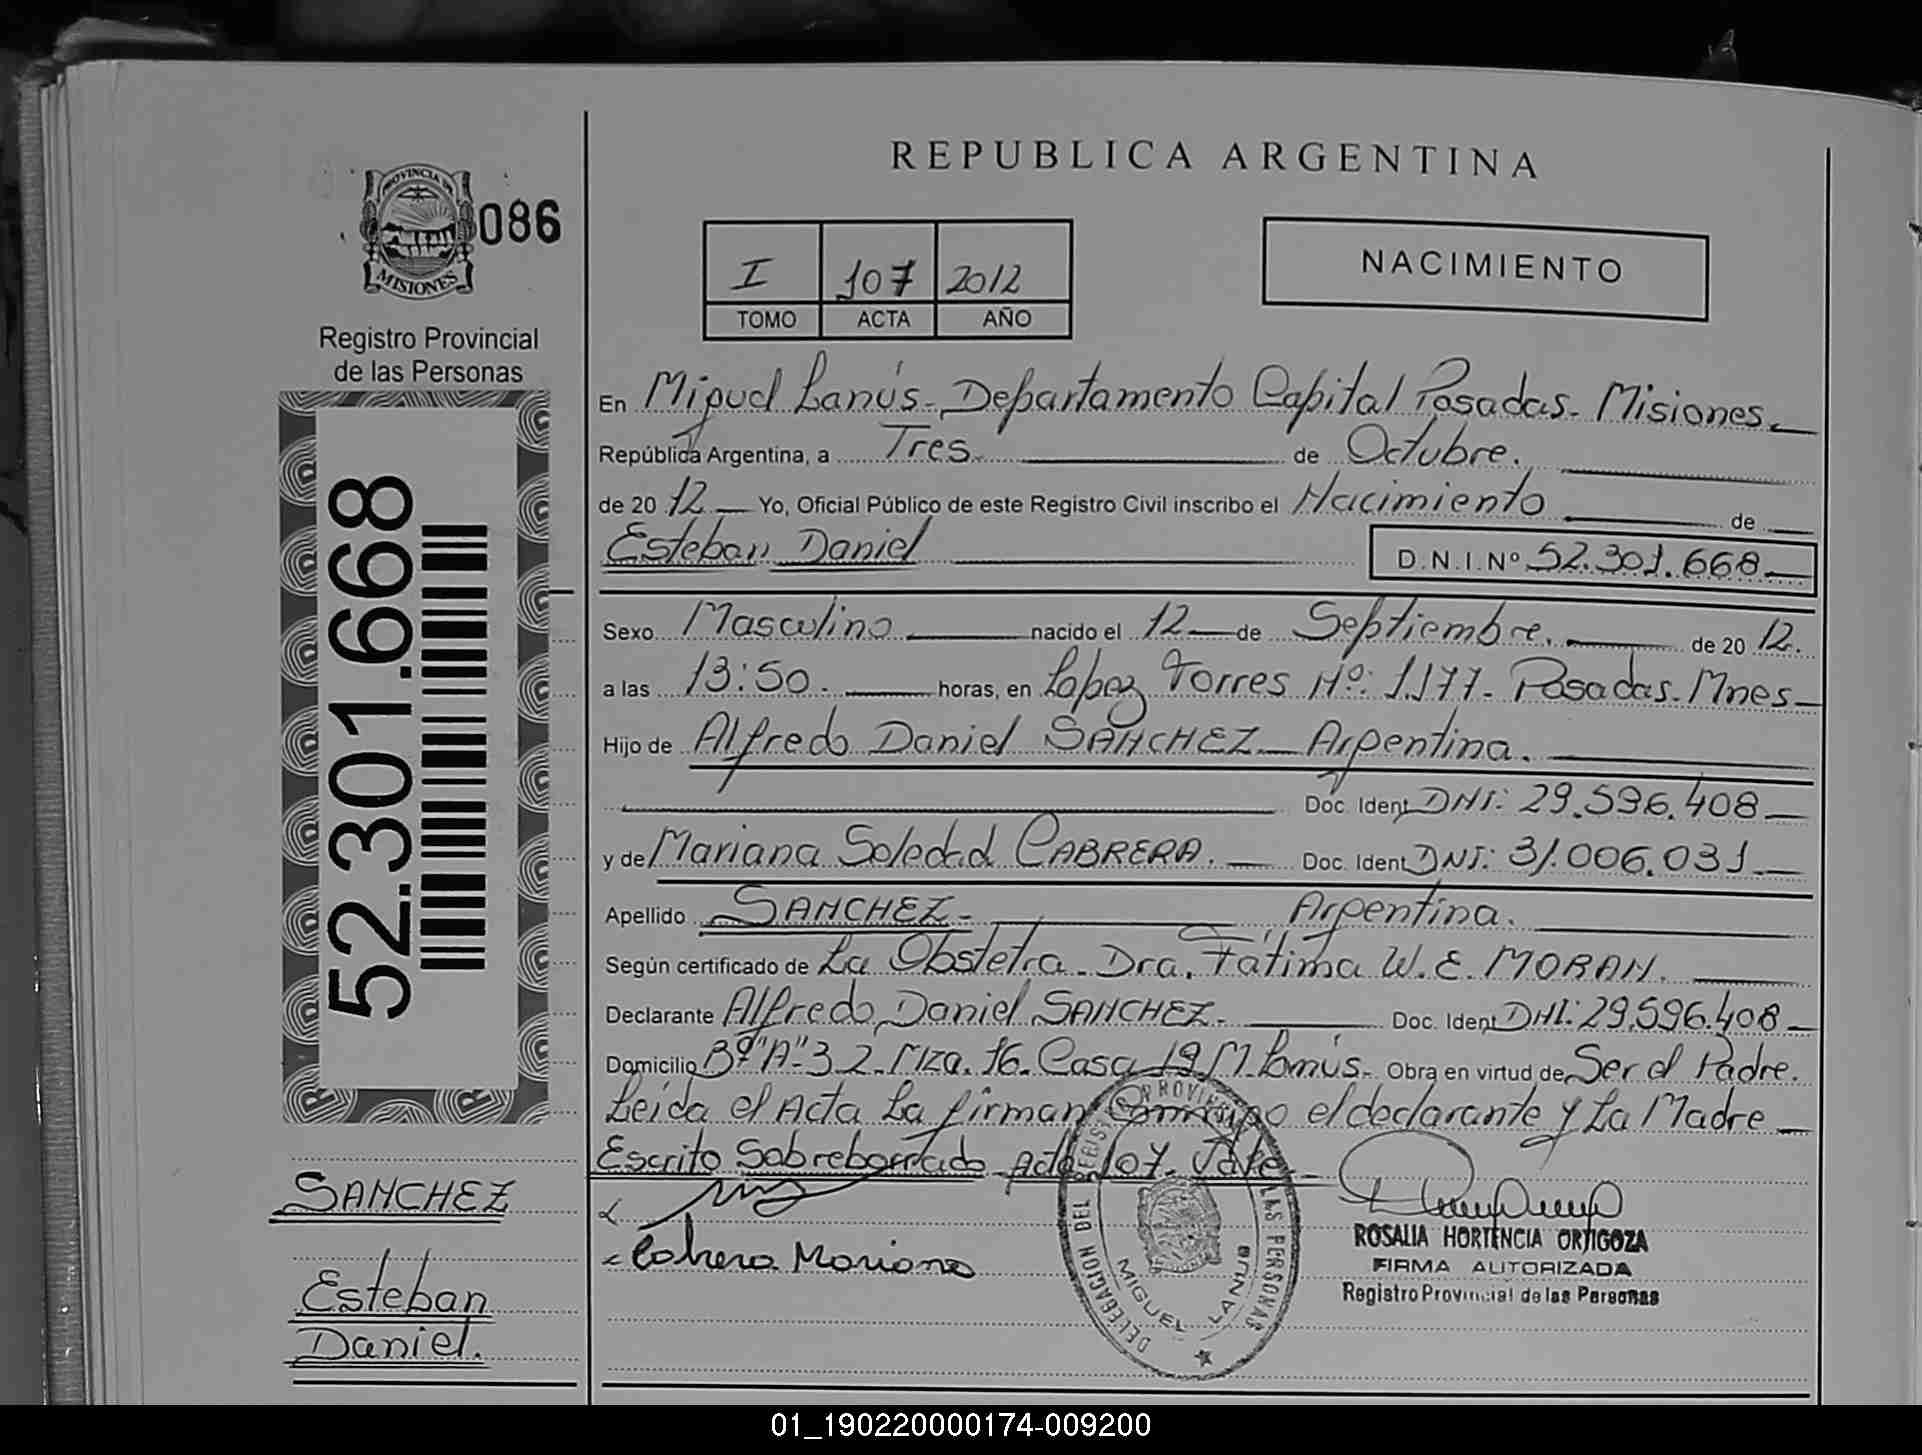 REPUBLICA ARGENTINA
PROVINCIA DE
MISIONES
086
Registro Provincial
de las Personas
52.301.668
I 107 2012
TOMO ACTA AÑO
NACIMIENTO
En Miguel Lanús - Departamento Capital Posadas - Misiones.
República Argentina, a Tres de Octubre.
de 20 12 Yo, Oficial Público de este Registro Civil inscribo el Nacimiento de
Esteban Daniel
D.N.I. Nº 52.301.668
Sexo Masculino nacido el 12 de Septiembre. de 20 12.
a las 13:50. horas, en López Torres Nº: 1.177 - Posadas - Mnes
Hijo de Alfredo Daniel SANCHEZ Argentina.
Doc. Ident DNI: 29.596.408
y de Mariana Soledad CABRERA. Doc. Ident DNI: 31.006.031
Apellido SANCHEZ - Argentina.
Según certificado de La Obstetra - Dra. Fátima W. E. MORAN.
Declarante Alfredo Daniel SANCHEZ - Doc. Ident DNI: 29.596.408
Domicilio Bº "A" 3-2 - Mza. 16 - Casa 19 M. Lanús - Obra en virtud de Ser el Padre.
Leída el Acta La firman Conmigo el declarante y La Madre
Escrito Sobreborrado Acta 107 - Vale
SANCHEZ
Esteban
Daniel.
Cabrera Mariana
DELEGACION DEL REGISTRO PROVINCIAL DE LAS PERSONAS
MIGUEL LANUS
ROSALIA HORTENCIA ORTIGOZA
FIRMA AUTORIZADA
Registro Provincial de las Personas
01_190220000174-009200